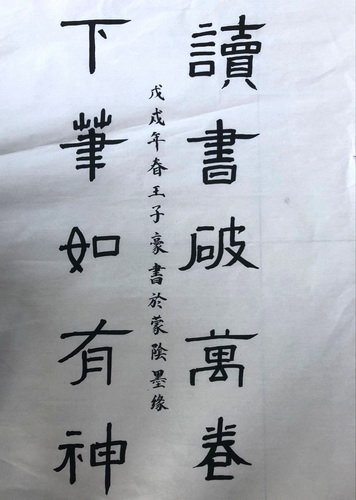 讀書破萬卷
下筆如有神
戊戌年春王子豪書於蒙陰墨缘